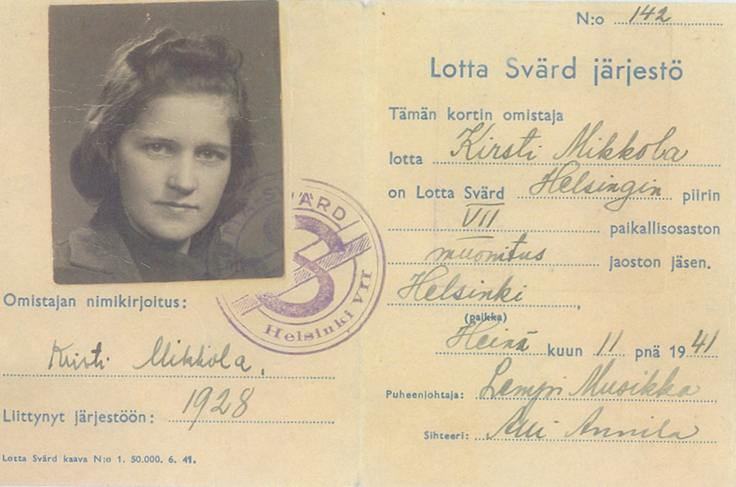 N:o 142
Lotta Svärd järjestö
Tämän kortin omistaja
lotta Kirsti Mikkola
on Lotta Svärd Helsingin piirin
VII paikallisosaston
muonitus jaoston jäsen.
Helsinki,
(paikka)
Heinä kuun 11 pnä 1941
Puheenjohtaja: Lempi Musikka
Sihteeri: Alli Annila
SVÄRD
Helsinki VII
Omistajan nimikirjoitus:
Kirsti Mikkola.
Liittynyt järjestöön: 1928
Lotta Svärd kaava N:o 1. 50.000. 6. 41.